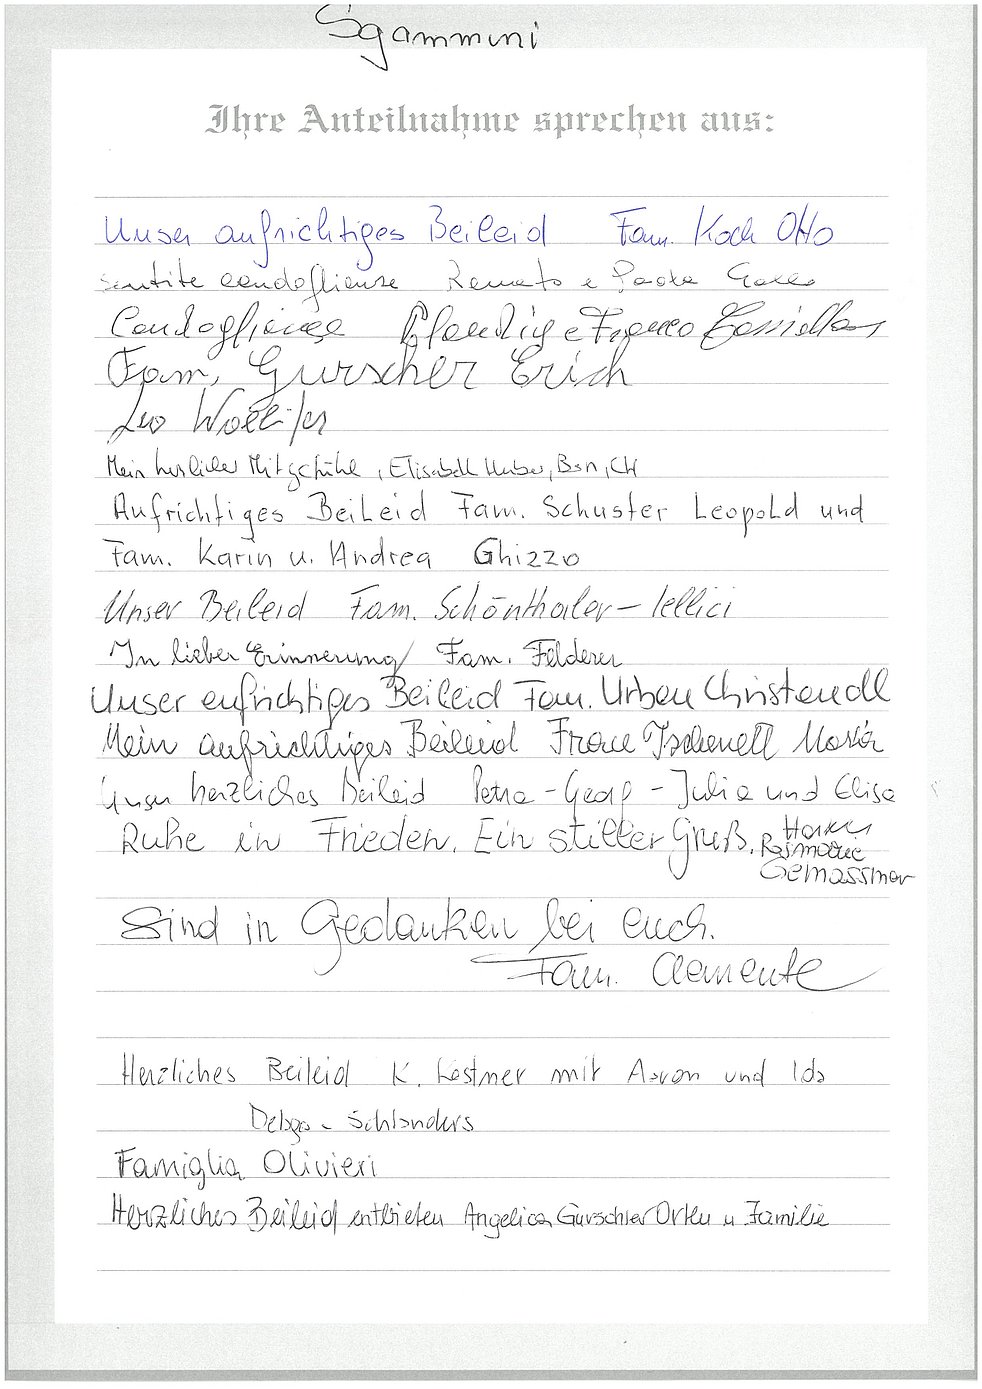 Sgammini
Ihre Anteilnahme sprechen aus:
Unser aufrichtiges Beileid Fam. Koch Otto
sentite condoglianze Renato e Paola
Condoglianze Claudia e Franco
Fam. Gurscher Erich
Leo
Mein herzliches Mitgefühl, Elisabeth Huber, Bsn, CH
Aufrichtiges Beileid Fam. Schuster Leopold und
Fam. Karin u. Andrea Ghizzo
Unser Beileid Fam. Schönthaler - Tellici
In lieber Erinnerung Fam. Felderer
Unser aufrichtiges Beileid Fam. Urban Christandl
Mein aufrichtiges Beileid Frau Tschenett Maria
Unser herzliches Beileid Petra - Georg - Julia und Elisa
Ruhe in Frieden. Ein stiller Gruß.
Rosmarie
Gemassmer
Sind in Gedanken bei euch.
Fam. Clemente
Herzliches Beileid K. Kastner mit Aaron und Ida
Schlanders
Famiglia Olivieri
Herzliches Beileid entbieten Angelica Gurschler Ortler u Familie